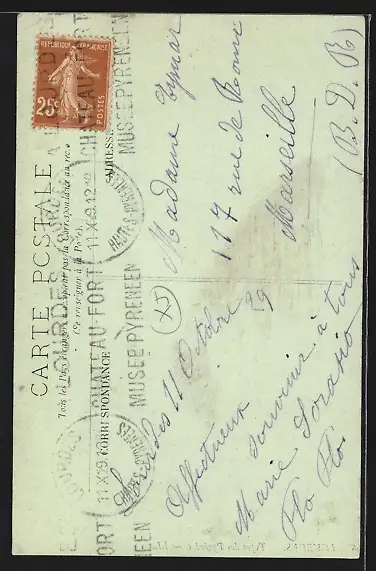 REPUBLIQUE FRANÇAISE
25c
POSTES
CARTE POSTALE
Tous les Pays étrangers n'acceptent pas la Correspondance au recto
(Se renseigner à la Poste).
CORRESPONDANCE
ADRESSE
LOURDES
CHATEAU-FORT
MUSEE PYRENEEN
LOURDES
11 X 29 12
HAUTES-PYRENEES
Madame Eymar
117 rue de Rome
Marseille
(B. D. R)
X5
Lourdes 11 Octobre 29
Affectueux
souvenir à tous
Marie
Flo Flo